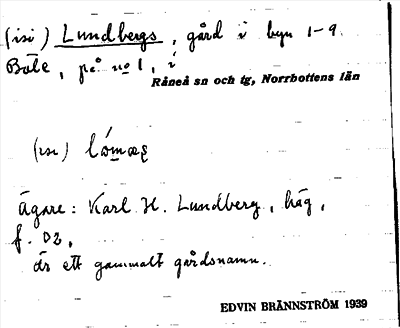 (isi) Lundbergs, gård i byn 1-9
Böle, på no 1, i
Råneå sn och tg, Norrbottens län
(isi)
Ägare: Karl H. Lundberg, häg,
f. 02,
är ett gammalt gårdsnamn.
EDVIN BRÄNNSTRÖM 1939